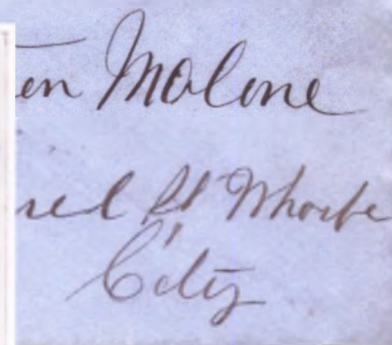 en Malone
rel St Wharfe
City